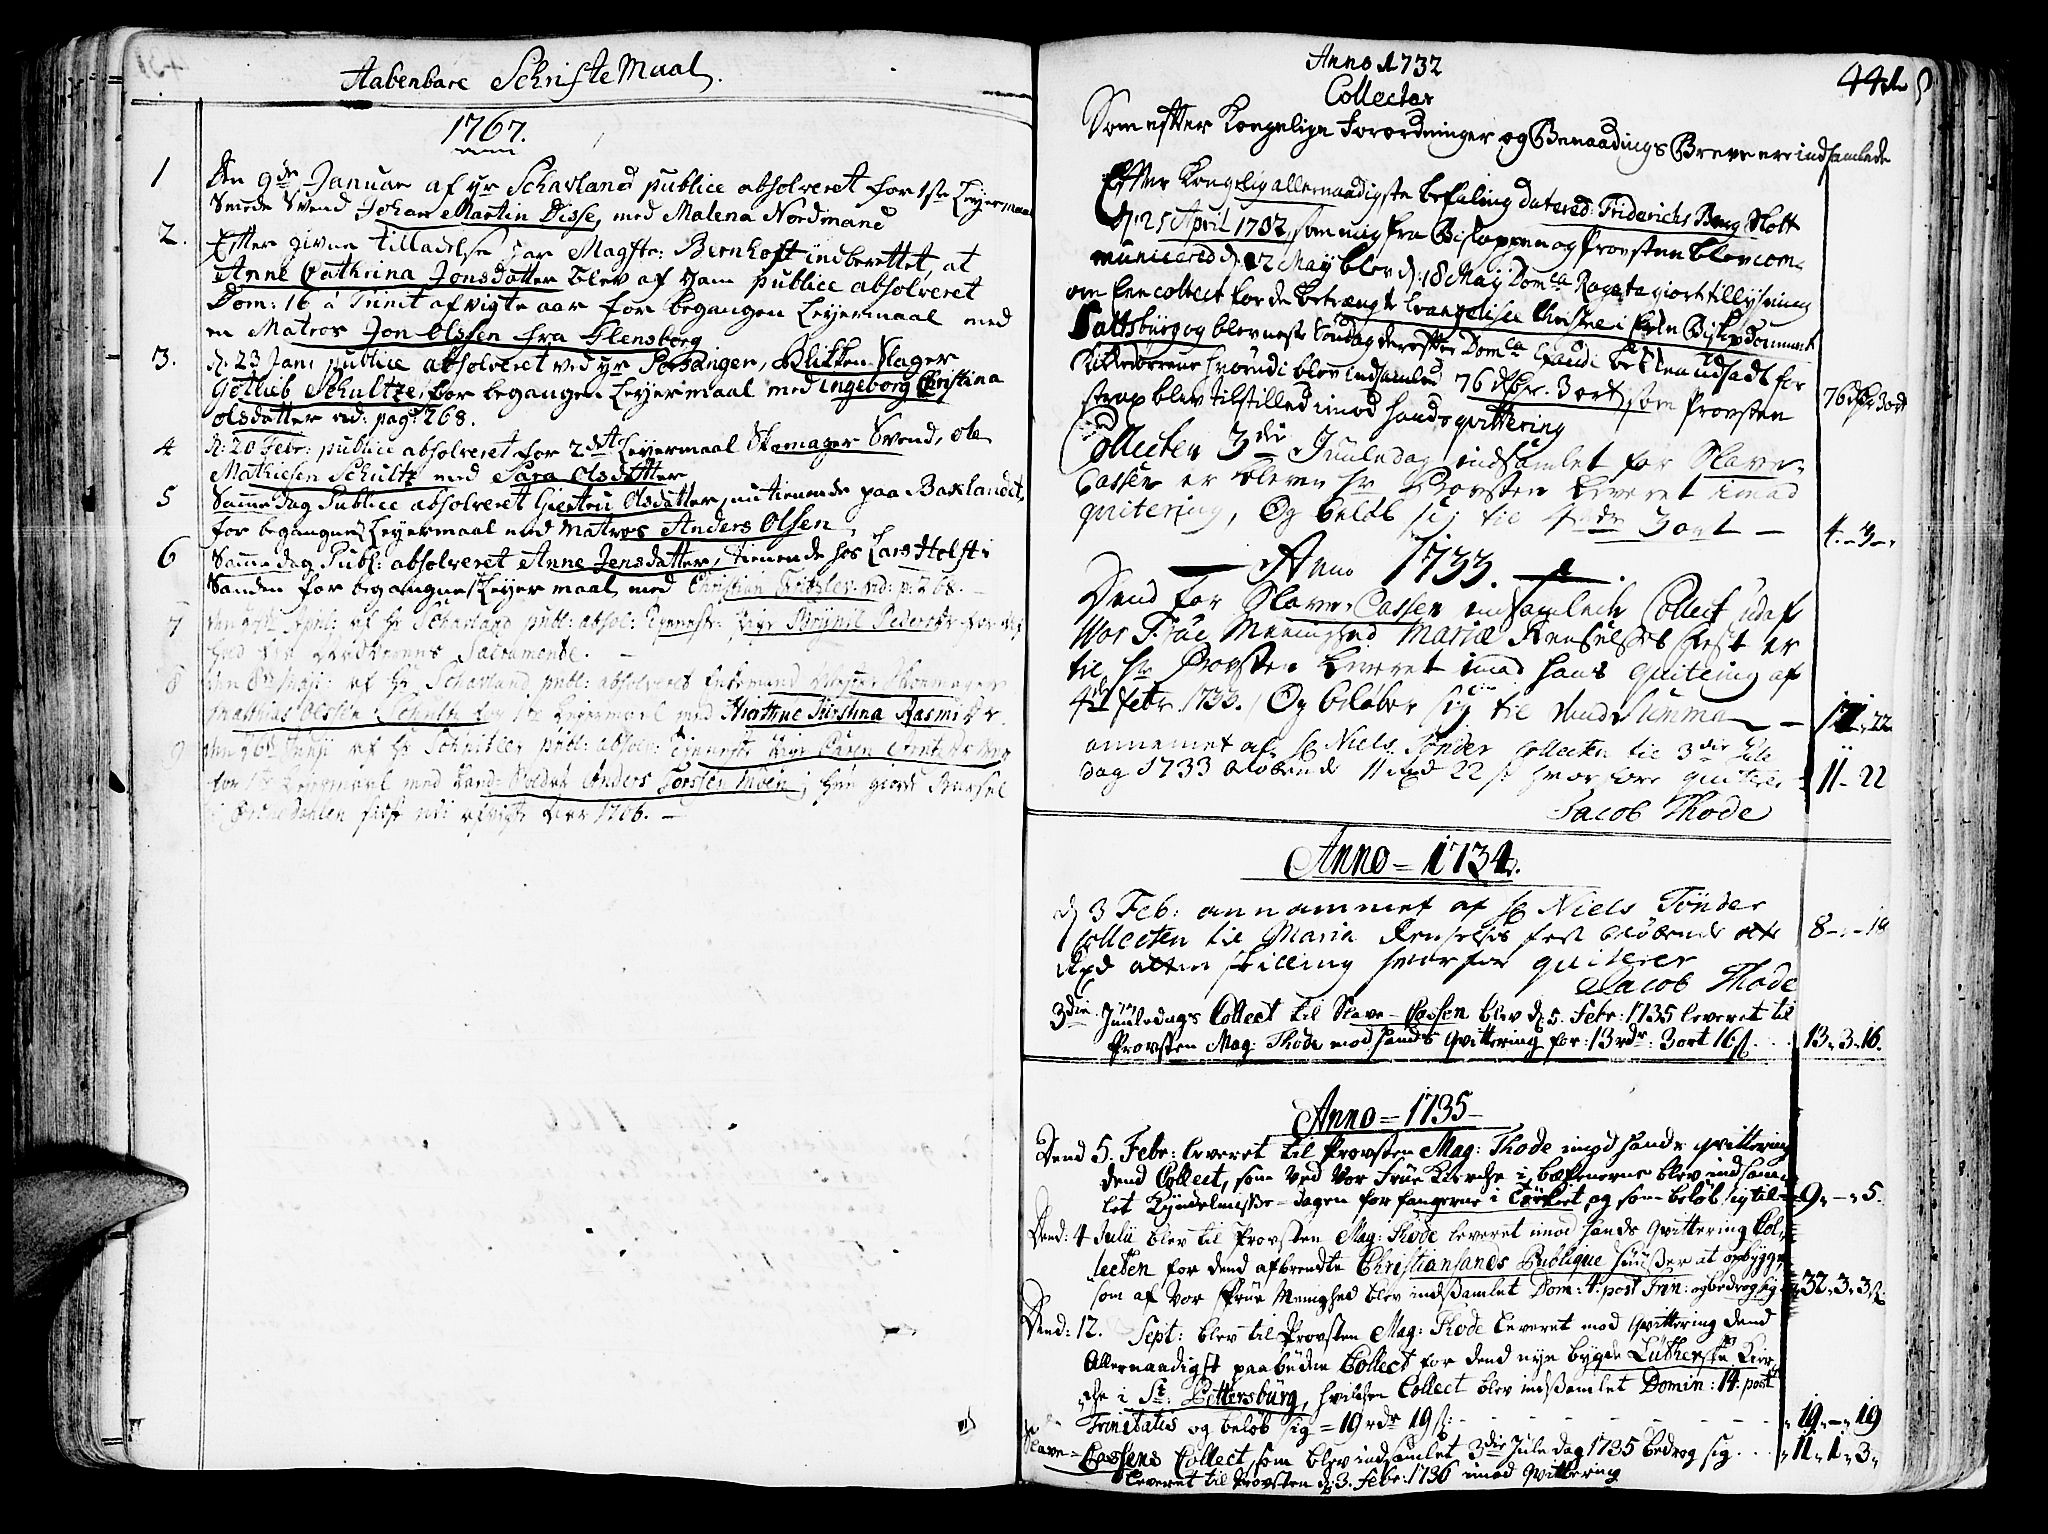 Aabenbare Schrifte Maal.
1767.
1 Den 9de Januar af Hr Schavland publice absolveret for 1ste Leyermaal
Smede Svend Johan Martin Disse, med Malena Nordmand
2. Efter given tilladelse har Magster: Bernhoft indberettet, at
Anne Cathrina Jonsdatter blev af ham publice absolveret
Dom: 16 à Trinit afvigte aar for begangen Leyermaal med
en Matros Jon Olssen fra Flensborg
3. d. 23 Jan: publice absolveret ved Hr Porsanger, Blikken Slager
Gotlieb Schultze, for begangen Leyermaal med Ingeborg Christina
olsdatter vid: pag: 268.
4 d: 20 Febr: publice absolveret for 2det Leyermaal Skomager Svend, Ole
Mathiesen Schultz med Sara Olsdatter
5 Samme dag Publice absolveret Giertru Olsdatter, nu tienende paa Baklandet,
for begangne Leyermaal med Matros Anders Olsen
6 Samme dag Publ: absolveret Anne Jensdatter, tienende hos Lars Holst i
Sanden for begangne Leyermaal med Christian vid: p: 268.
7 den April: af Hr Schavland publ: absol: Pige Pedersdtr
Sacramente.
8 den 8de Maji: af Hr Schavland publ: absolveret
Matthias Olssen Schultz for Leyermaal med Kirstina Rasmusdtr.
9 den Junji af Hr Schnitler publ: absol: Pige Karen
for 1ste Leyermaal med Land-Soldat Anders Moen; hun giorde Barsel
i sidst udi afvigte aar 1766.
Anno 1732
441
Collecter
Som efter Kongelige Forordninger og Benaadings Breve ere indsamlede
Efter Kongelig allernaadigste befaling datered: Friderichs Berg Slott
d: 25 April 1732, som mig fra Biskoppen og Provsten blev com-
municered d: 12 May blev d: 18 May Domca Rogate giort tillysning
om een collect for de betrængte Evangeliske Christne i Erke Bispedommet
Saltsburg og blev neste Søndag derefter Domca Exaudi udsadt for
Kirkedørrene hvorudi blev indsamlet 76 rdlr. 3 ort, som Provsten 76 rdlr 3 ort
blev tilstilled imod hands qvittering
Collecten 3die Juuledag indsamlet for Slave-
Cassen er bleven Hr Provsten leveret imod
quitering, Og beløb sig til 4 rdr 3 ort — 4 - 3 -
Anno 1733.
Dend for Slave-Cassen indsamlede Collect udaf
Vor Frue Meenighed Mariæ Renselses Fest er
til Hr Provsten leveret imod hans quitering af
4de febr. 1733. Og beløber sig til dend summa — 11 - 22
annemet af Hr Niels Tønder collecten til 3die Jule
dag 1733 beløbende 11 rixd 22 s hvorfore quiterer 11 - 22
Jacob Thode
Anno = 1734.
d 3 Feb: annammet af Hr Niels Tønder
Collecten til Maria Renselses fest beløbende otte 8 - - 18
Rixd atten skilling hvorfor quiterer
Jacob Thode
3die Juuledags Collect til Slave-Cassen blev d: 5. Febr: 1735 leveret til
Provsten Mag: Thode mod hands qvittering for: 13 rdr 3 ort 16 s. 13 - 3 - 16.
Anno = 1735
Dend 5. Febr: leveret til Provsten Mag: Thode imod hands qvittering
dend Collect, som ved Vor Frue Kirche i bøssenerne blev indsam-
let Kyndelmisse-dagen for fangerne i Tyrkiet og som beløb sig til 9 - - 5.
Dend: 4 Julii blev til Provsten Mag: Thode leveret imod hands qvittering Col-
lecten for dend afbrendte Christiansands Publique Huußer at opbygge
som af Vor Frue Menighed blev indßamlet Dom: 4. post Trin: og bedrog sig 32 - 3 - 3 s.
Dend: 12. Sept: blev til Provsten Mag: Thode leveret mod qvittering dend
Allernaadigst paabudne Collect for dend nye bygde Lutherske Kir-
che i St: Pettersburg, hvilken Collect blev indßamlet Domin: 14. post
Trinitatis og beløb sig = 19 rdr 19 s: 19 - - 19
Slave-Cassens Collect, som blev indsamlet 3die Jule dag 1735 bedrog sig 11 - 1 - 3
leveret til Provsten d: 3. Febr: 1736 imod qvittering